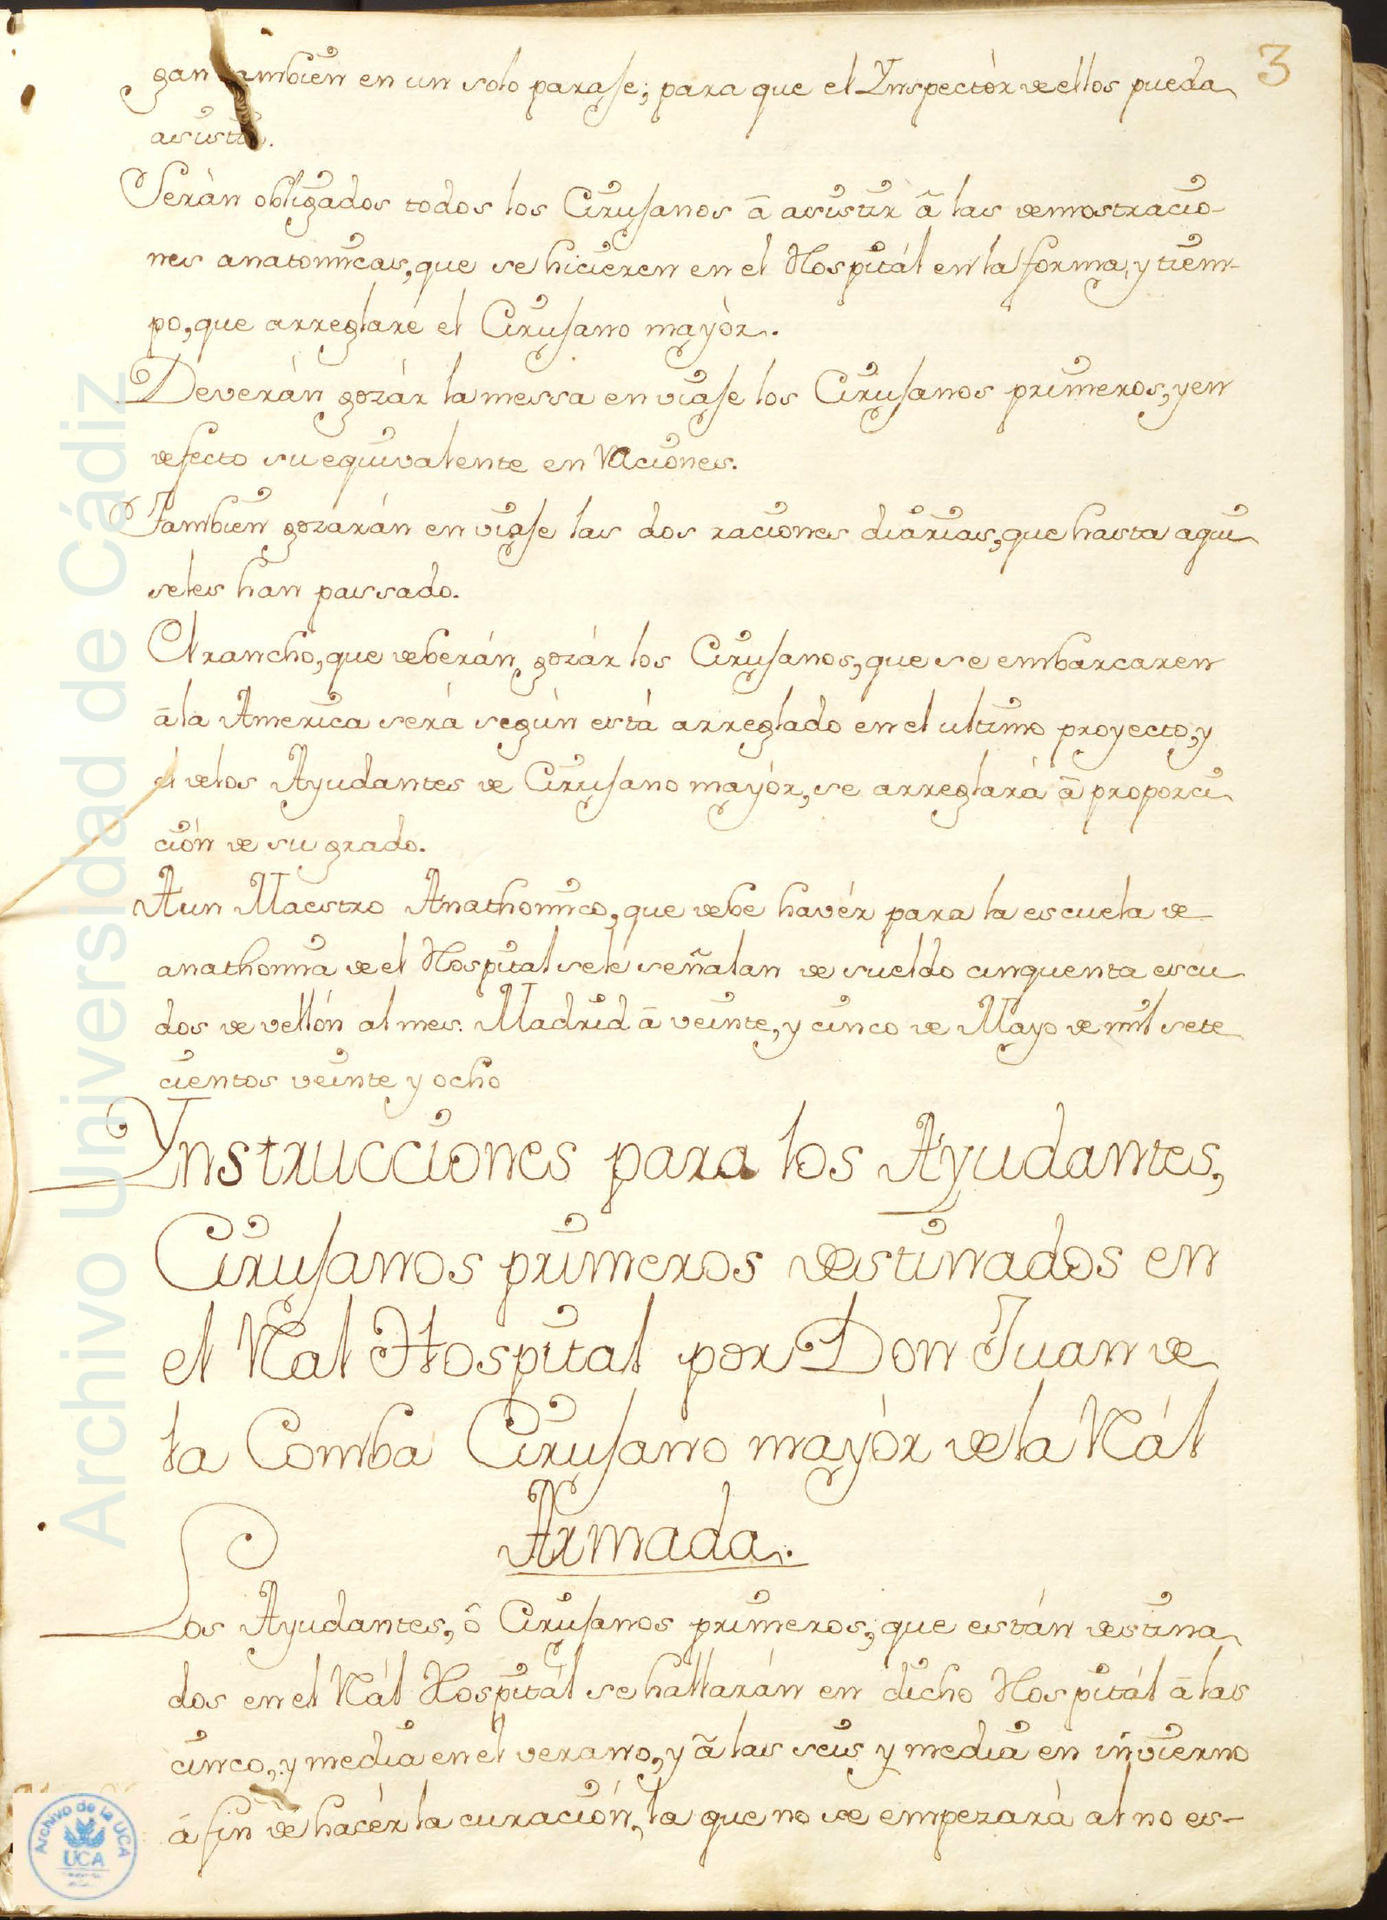 3
gan tambien en un solo paraje; para que el Ynspectór de ellos pueda
asistir.
Serán obligados todos los Cirujanos â asistir â las demostracio-
nes anatomicas, que se hicieren en el Hospitál en la forma, y tiem-
po, que arreglaré el Cirujano mayòr.
Deverán gozár la messa en viaje los Cirujanos primeros, y en
defecto su equivalente en Raciones.
Tambien gozarán en viaje las dos raciones diárias, que hasta aqui
seles hán passado.
El rancho, que deberán gozár los Cirujanos, que se embarcaren
â la America será según está arreglado en el ultimo proyecto, y
el delos Ayudantes de Cirujano mayór, se arreglará â proporci
ción de su grado.
A un Maestro Anathomico, que debe havér para la escuela de
anathomia de el Hospital sele señalan de sueldo cinquenta escu
dos de vellón al mes. Madrid â veinte, y cinco de Mayo de mil sete
cientos veinte y ocho
Ynstrucciones para los Ayudantes,
Cirujanos primeros destinados en
el Ral Hospital por Don Juan de
la Comba Cirujano mayòr dela Rál
Armada.
Los Ayudantes, ô Cirujanos primeros, que están destina
dos en el Rál Hospitál se hallarán en dicho Hospitál â las
cinco, y media en el verano, y â las seis y media en invierno
â fin de hacér la curación, la que no se empezarà al no es-
Archivo Universidad de Cádiz
Archivo de la UCA
UCA